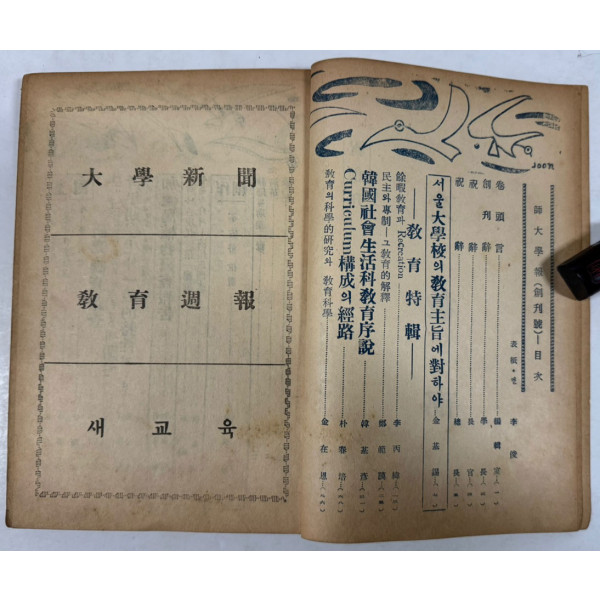 大學新聞
敎育週報
새교육
Joon
師大學報(創刊號)—目次
表紙·컷 李俊
卷頭言 編輯室
創刊辭 學長
祝辭 長官
祝辭 總長
서울大學校의敎育主旨에對하야 金基
—敎育特輯—
餘暇敎育과 Recreation 李丙
民主와專制—그敎育的解釋 鄭範謨
韓國社會生活科敎育序說 韓基彦
Curriculum構成의經路 朴
敎育의科學的硏究와 敎育科學 金在恩